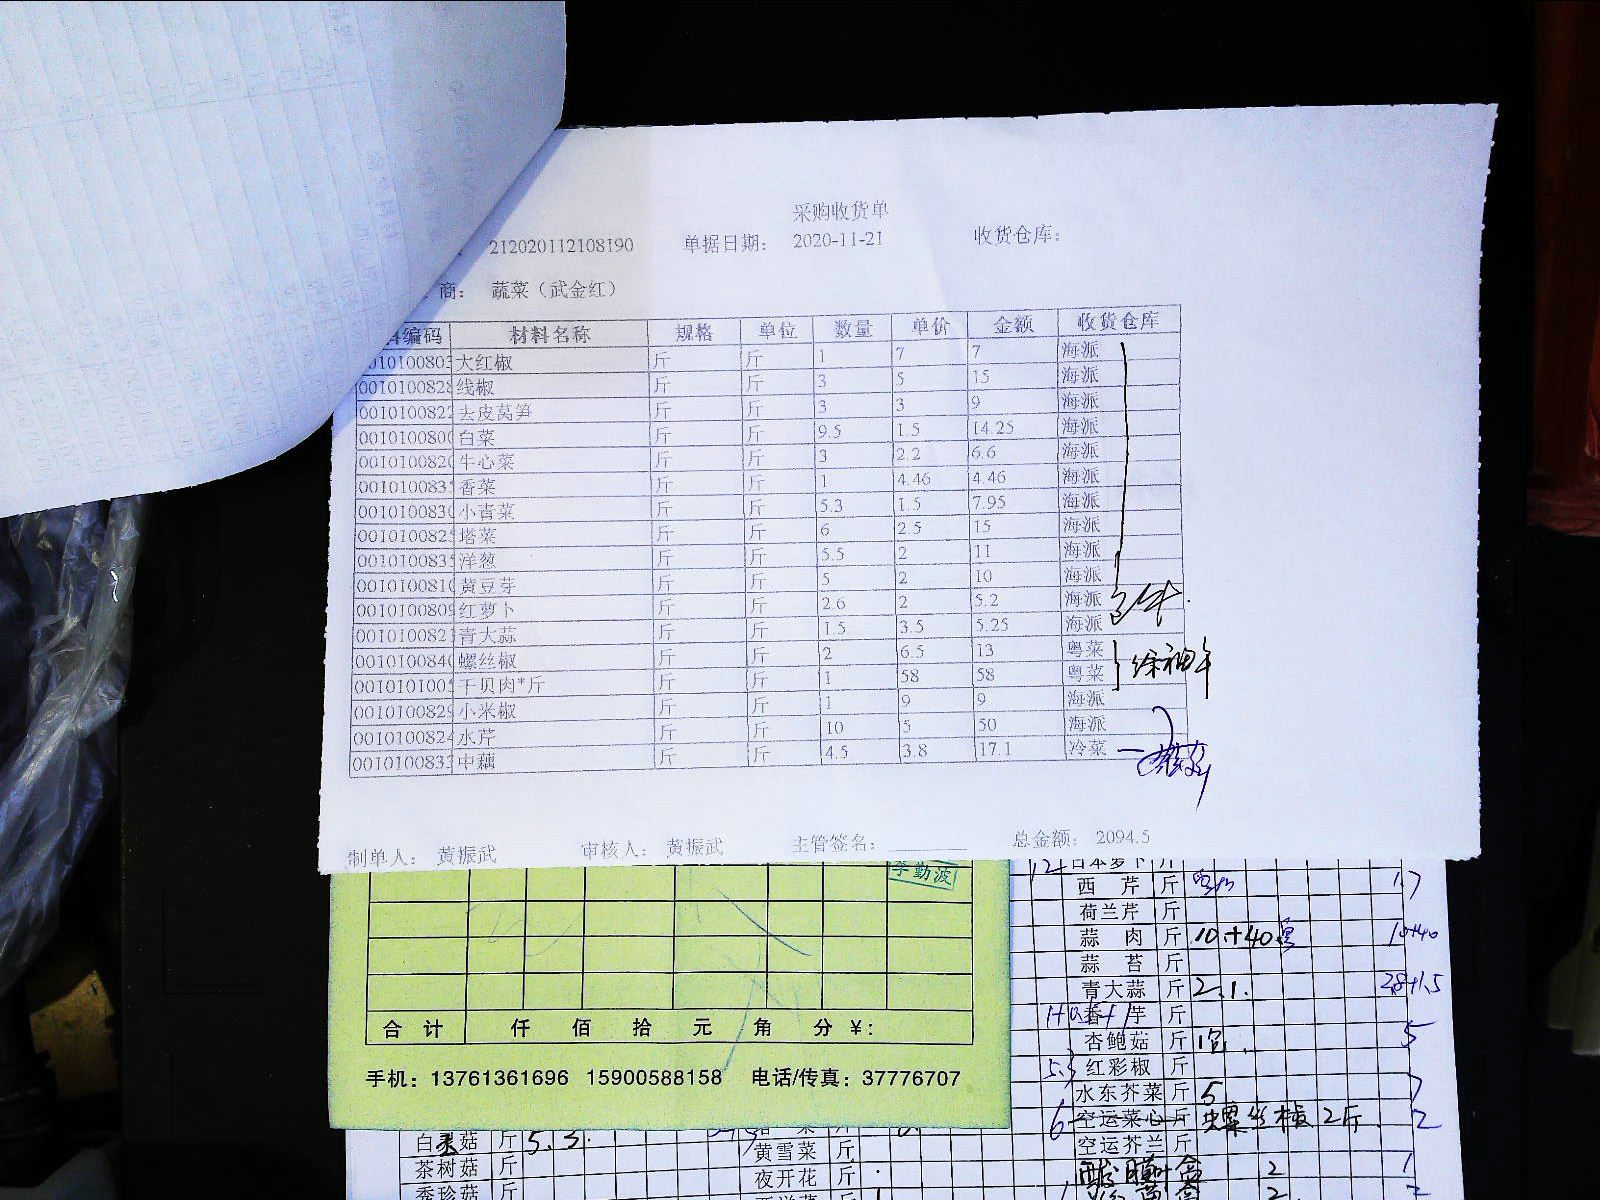 采购收货单
212020112108190 单据日期： 2020-11-21 收货仓库：
商： 蔬菜（武金红）
编码 材料名称 规格 单位 数量 单价 金额 收货仓库
01010080 大红椒 斤 斤 1 7 7 海派
0010100828 线椒 斤 斤 3 5 15 海派
0010100822 去皮莴笋 斤 斤 3 3 9 海派
0010100800 白菜 斤 斤 9.5 1.5 14.25 海派
0010100820 牛心菜 斤 斤 3 2.2 6.6 海派
001010083 香菜 斤 斤 1 4.46 4.46 海派
0010100830 小青菜 斤 斤 5.3 1.5 7.95 海派
001010082 塔菜 斤 斤 6 2.5 15 海派
001010083 洋葱 斤 斤 5.5 2 11 海派
0010100810 黄豆芽 斤 斤 5 2 10 海派
0010100809 红萝卜 斤 斤 2.6 2 5.2 海派
001010082 青大蒜 斤 斤 1.5 3.5 5.25 海派
0010100840 螺丝椒 斤 斤 2 6.5 13 粤菜
001010100 干贝肉*斤 斤 斤 1 58 58 粤菜
0010100829 小米椒 斤 斤 1 9 9 海派
0010100824 水芹 斤 斤 10 5 50 海派
001010083 中藕 斤 斤 4.5 3.8 17.1 冷菜
制单人： 黄振武 审核人： 黄振武 主管签名： 总金额： 2094.5
李勤波
合计 仟 佰 拾 元 角 分 ￥：
手机：13761361696 15900588158 电话/传真：37776707
12 日本萝卜 斤
西芹 斤 17
荷兰芹 斤
蒜肉 斤 10.+40 10+40
蒜苔 斤
青大蒜 斤 2.1. 28+1.5
香芋 斤
杏鲍菇 斤 5
5.3 红彩椒 斤
水东芥菜 斤 5 7
6 空运菜心 斤 螺丝椒 2斤 2
空运芥兰 斤
白 菇 斤 5.3.
茶树菇 斤
秀珍菇 斤
黄雪菜 斤
夜开花 斤
2 1
2